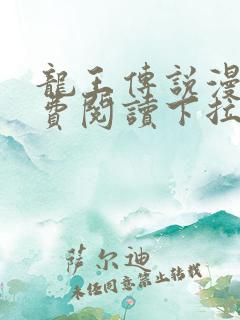 龍王傳說漫
費閱讀下拉
萨尔迪
未经同意禁止转载